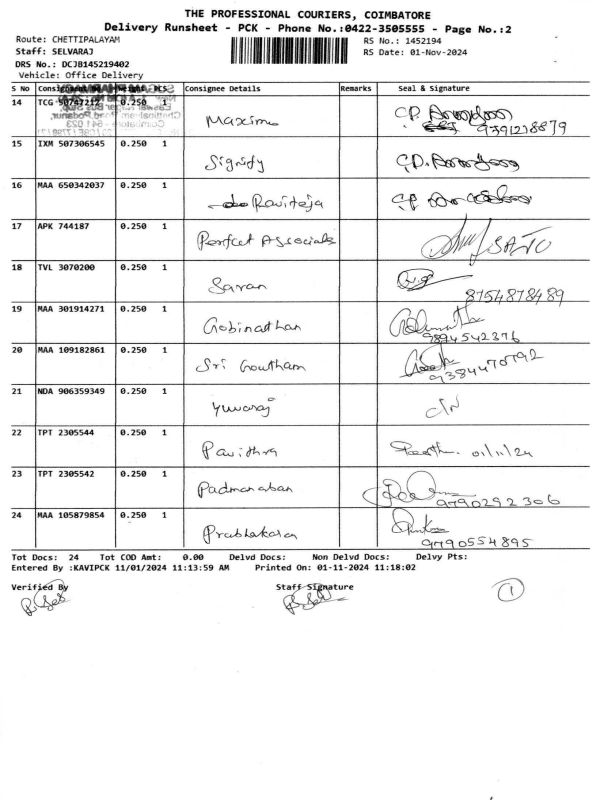 THE PROFESSIONAL COURIERS, COIMBATORE
Delivery Runsheet - PCK - Phone No.:0422-3505555 - Page No.:2
Route: CHETTIPALAYAM RS No.: 1452194
Staff: SELVARAJ RS Date: 01-Nov-2024
DRS No.: DCJB145219402
Vehicle: Office Delivery
S No Consignment No Weight PCS Consignee Details Remarks Seal & Signature
14 TCG 50747212 0.250 1 Maxime
9791218879
15 IXM 507306545 0.250 1 Signify
16 MAA 650342037 0.250 1 Raviteja
17 APK 744187 0.250 1 Perfect Associats
18 TVL 3070200 0.250 1 Saran
8754878489
19 MAA 301914271 0.250 1 Gobinathan
9894542376
20 MAA 109182861 0.250 1 Sri Goutham
9384470792
21 NDA 906359349 0.250 1 Yuvaraj C/N
22 TPT 2305544 0.250 1 Pavithra 01/11/24
23 TPT 2305542 0.250 1 Padmanaban
9790292306
24 MAA 105879854 0.250 1 Prabhakara
9790554895
Tot Docs: 24 Tot COD Amt: 0.00 Delvd Docs: Non Delvd Docs: Delvy Pts:
Entered By :KAVIPCK 11/01/2024 11:13:59 AM Printed On: 01-11-2024 11:18:02
Verified By Staff Signature
1